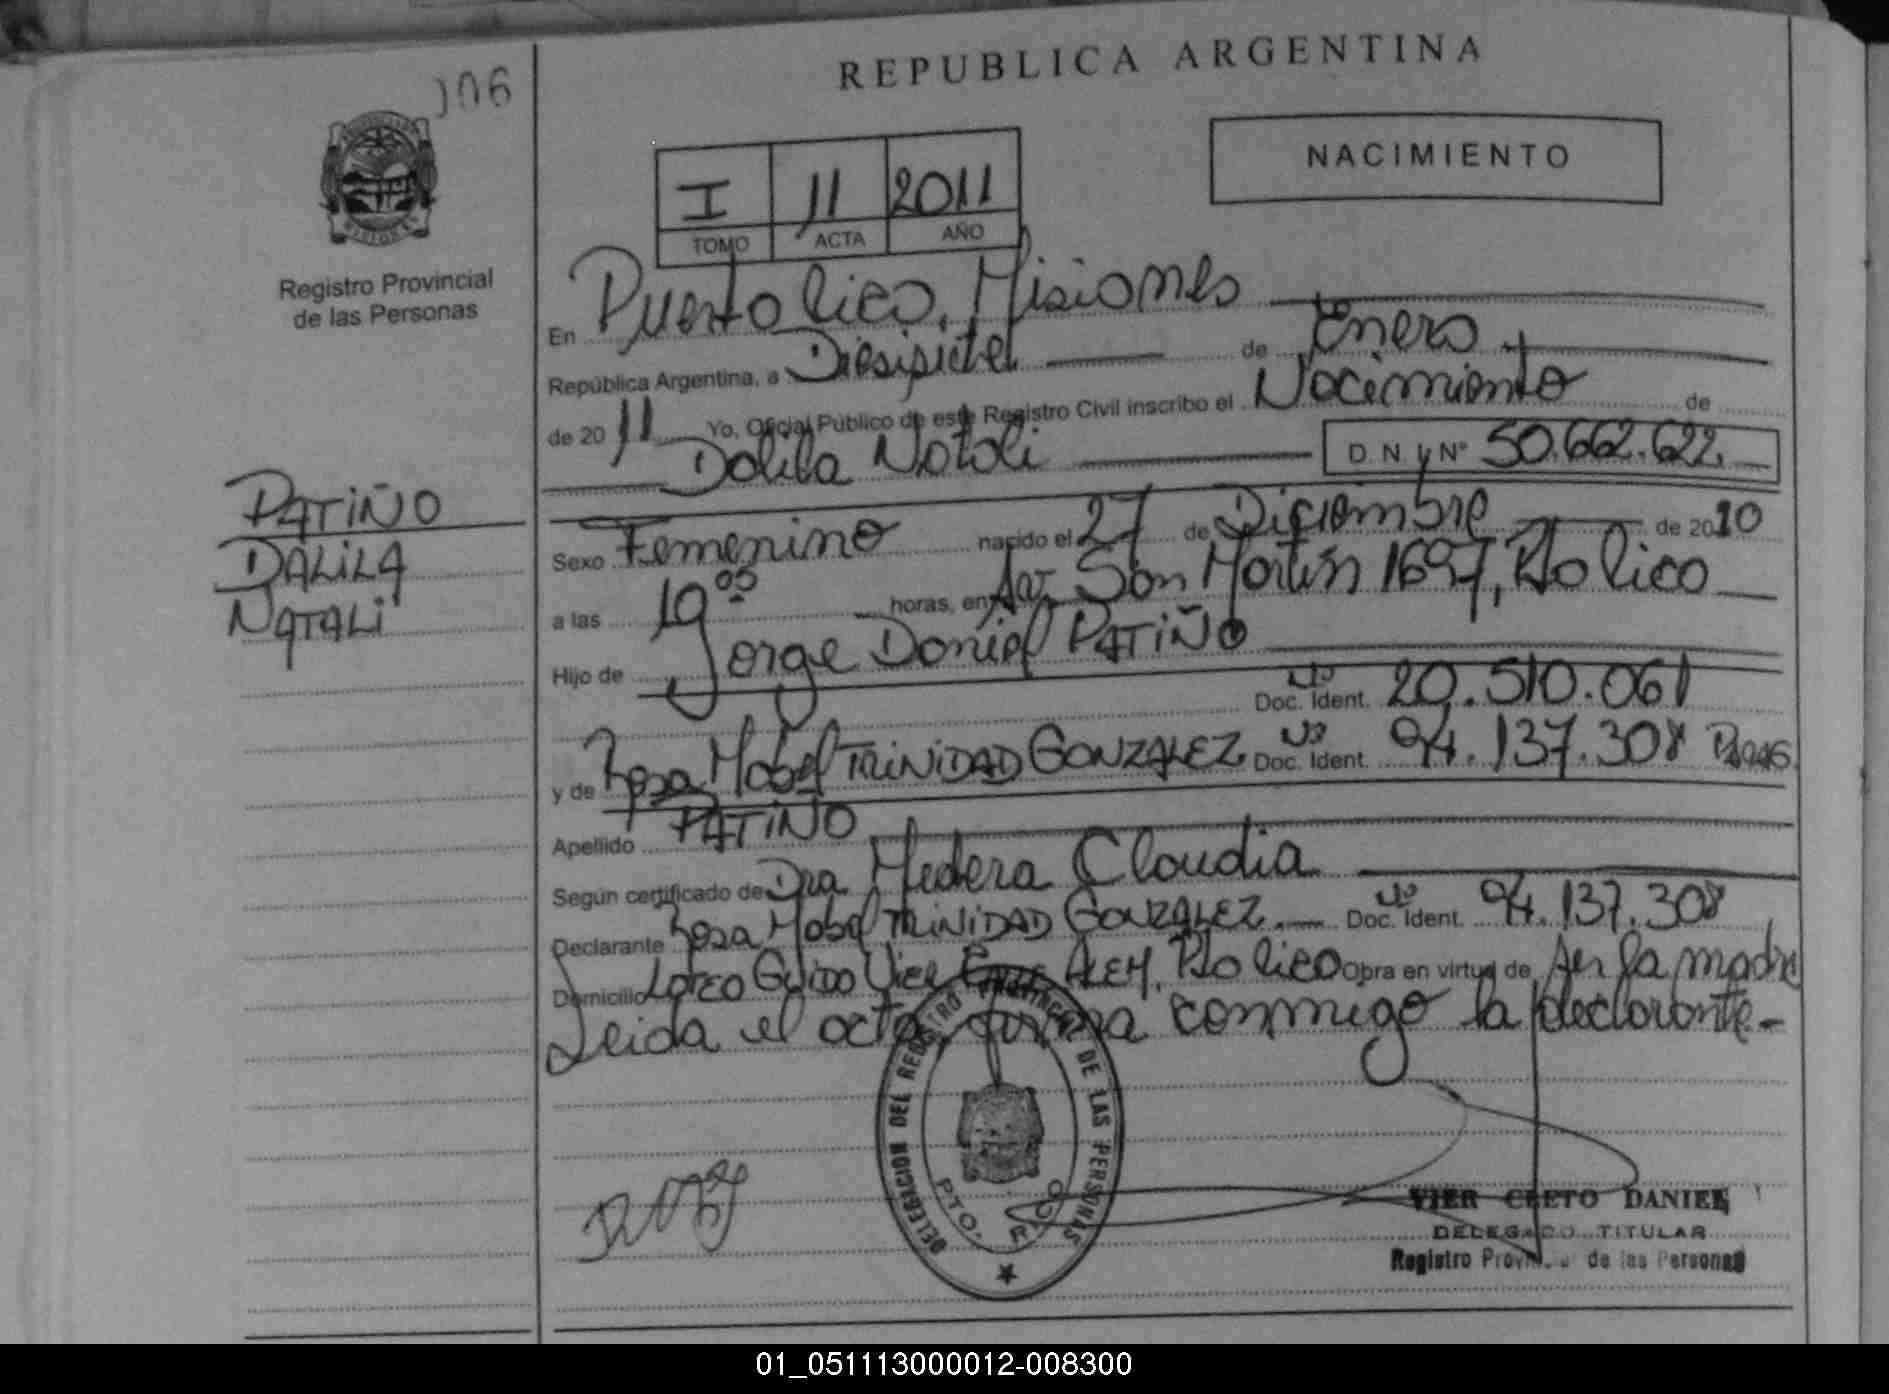 106
REPUBLICA ARGENTINA
NACIMIENTO
I 11 2011
TOMO ACTA AÑO
Registro Provincial
de las Personas
En Puerto Rico, Misiones
República Argentina, a Diesisiete de Enero
de 2011 Yo, Oficial Público de este Registro Civil inscribo el Nacimiento de
Dalila Natali D.N.I. Nº 50.662.622
PATIÑO
DALILA
NATALI
Sexo Femenino nacido el 27 de Diciembre de 2010
a las 19 05 horas, en Av. San Martín 1697, Pto Rico
Hijo de Jorge Daniel PATIÑO
Doc. Ident. Nº 20.510.061
y de Rosa Mabel TRINIDAD GONZALEZ Doc. Ident. Nº 94.137.308
Apellido PATIÑO
Según certificado de Dra Medera Claudia
Declarante Rosa Mabel TRINIDAD GONZALEZ Doc. Ident. Nº 94.137.308
Domicilio ALEM, Pto Rico Obra en virtud de ser la madre
Leida el acta, firma conmigo la declarante-
DELEGACION DEL REGISTRO PROVINCIAL DE LAS PERSONAS
PTO. RICO
VIER CLETO DANIEL
DELEGADO TITULAR
Registro Provincial de las Personas
01_051113000012-008300